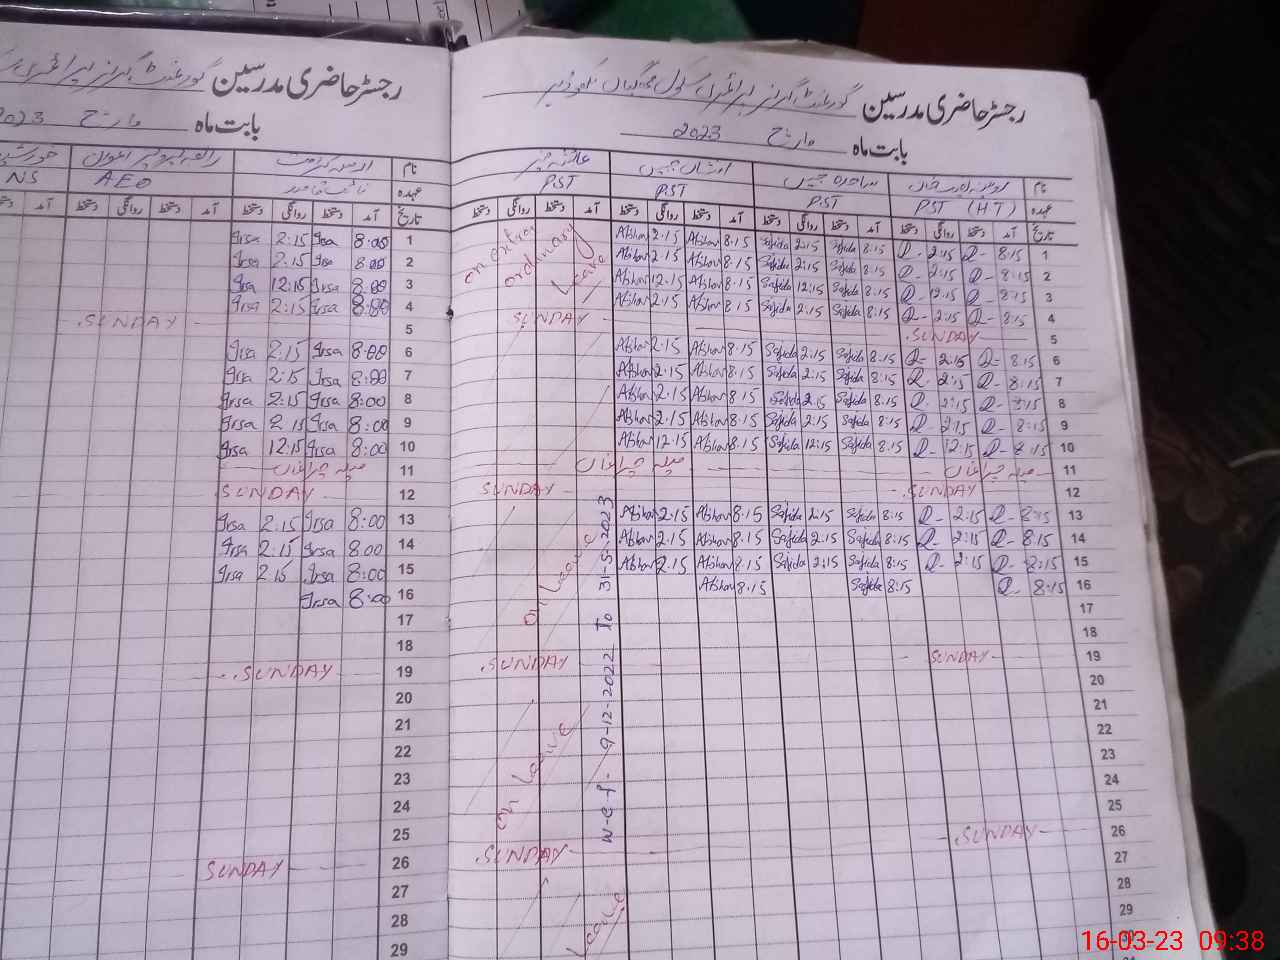 رجسٹر حاضری مدرسین گورنمنٹ گرلز پرائمری سکول
بابت ماہ مارچ 2023
نام
عہدہ PST (HT) PST PST PST
تاریخ آمد دستخط روانگی دستخط آمد دستخط روانگی دستخط آمد دستخط روانگی دستخط آمد دستخط روانگی دستخط
1 8:15 Q- 2:15 Q- 8:15 Sajida 2:15 Sajida 8.15 Afshan 2.15 Afshan
2 8:15 Q- 2:15 Q- 8:15 Sajida 2:15 Sajida 8.15 Afshan 2.15 Afshan
3 8:15 Q- 12:15 Q- 8:15 Sajida 12:15 Sajida 8.15 Afshan 12.15 Afshan
4 8:15 Q- 2:15 Q- 8:15 Sajida 2:15 Sajida 8.15 Afshan 2.15 Afshan
5 SUNDAY SUNDAY
6 8:15 Q- 2:15 Q- 8:15 Sajida 2:15 Sajida 8.15 Afshan 2.15 Afshan
7 8:15 Q- 2:15 Q- 8:15 Sajida 2:15 Sajida 8.15 Afshan 2.15 Afshan
8 8:15 Q- 2:15 Q- 8:15 Sajida 2:15 Sajida 8.15 Afshan 2.15 Afshan
9 8:15 Q- 2:15 Q- 8:15 Sajida 2:15 Sajida 8.15 Afshan 2.15 Afshan
10 8:15 Q- 12:15 Q- 8:15 Sajida 12:15 Sajida 8.15 Afshan 12.15 Afshan
11 میلہ چراغاں میلہ چراغاں
12 SUNDAY SUNDAY
13 8:15 Q- 2:15 Q- 8:15 Sajida 2:15 Sajida 8.15 Afshan 2.15 Afshan
14 8:15 Q- 2:15 Q- 8:15 Sajida 2.15 Sajida 8.15 Afshan 2.15 Afshan
15 8:15 Q- 2:15 Q- 8:15 Sajida 2:15 Sajida 8.15 Afshan 2.15 Afshan
16 8:15 Q- 8:15 Sajida 8.15 Afshan
17
18
19 SUNDAY SUNDAY
20
21
22
23
24
25
26 SUNDAY SUNDAY
27
28
29
30
on extra
ordinary
Leave
on Leave
on Leave
Leave
w-e-f- 9-12-2022 To 31-5-2023
رجسٹر حاضری مدرسین گورنمنٹ گرلز پرائمری
بابت ماہ مارچ 2023
نام
عہدہ نائب قاصد AEO NS
تاریخ آمد دستخط روانگی دستخط آمد دستخط روانگی دستخط آمد دستخط
1 8:00 Irsa 2:15 Irsa
2 8:00 Irsa 2:15 Irsa
3 8:00 Irsa 12:15 Irsa
4 8:00 Irsa 2:15 Irsa
5 SUNDAY
6 8:00 Irsa 2:15 Irsa
7 8:00 Irsa 2:15 Irsa
8 8:00 Irsa 2:15 Irsa
9 8:00 Irsa 2:15 Irsa
10 8:00 Irsa 12:15 Irsa
11 میلہ چراغاں
12 SUNDAY
13 8:00 Irsa 2:15 Irsa
14 8:00 Irsa 2:15 Irsa
15 8:00 Irsa 2.15 Irsa
16 8:00 Irsa
17
18
19 SUNDAY
20
21
22
23
24
25
26 SUNDAY
27
28
29
16-03-23 09:38